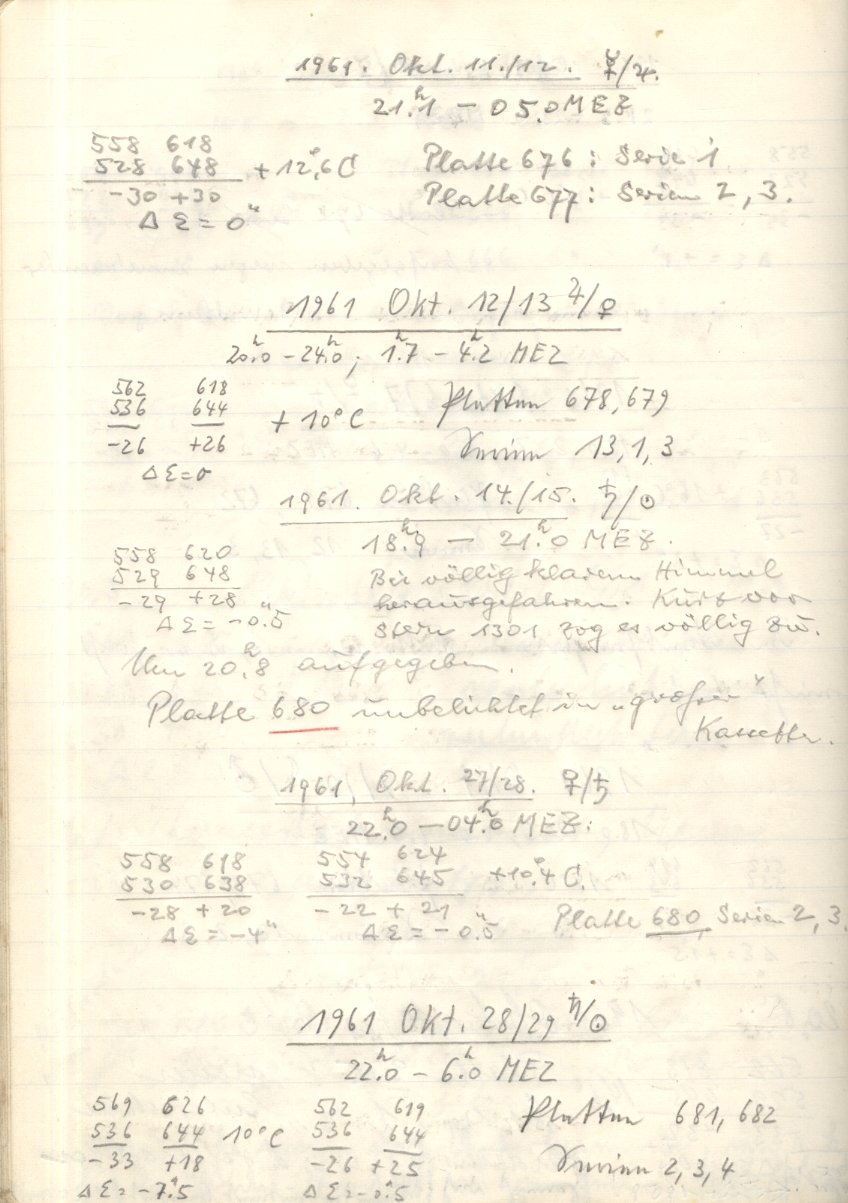 1961. Okt. 11./12. ☿/♃.
21.ʰ1 – 05.0 MEZ
558 618
528 648 + 12,°6 C Platte 676 : Serie 1
-30 +30 Platte 677 : Serien 2, 3.
Δ Σ = 0"
1961 Okt. 12/13 ♃/♀
20.ʰ0 – 24.ʰ0 ; 1.ʰ7 – 4.ʰ2 MEZ
562 618
536 644 + 10°C Platten 678, 679
-26 +26 Serien 13, 1, 3
Δ Σ = 0
1961. Okt. 14./15. ♄/☉
18.ʰ9 – 21.ʰ0 MEZ.
558 620
529 648 Bei völlig klarem Himmel
-29 +28 herausgefahren. Kurz vor
Δ Σ = -0."5 Stern 1301 zog es völlig zu.
Um 20.ʰ8 aufgegeben.
Platte 680 unbelichtet in „großer"
Kassette.
1961, Okt. 27/28. ♀/♄
22.ʰ0 – 04.ʰ0 MEZ:
558 618 554 624
530 638 532 645 +10.°4 C.
-28 +20 -22 + 21 Platte 680, Serien 2, 3.
Δ Σ = -4" Δ Σ = -0."5
1961 Okt. 28/29 ♄/☉
22.ʰ0 – 6.ʰ0 MEZ
569 626 562 619 Platten 681, 682
536 644 10°C 536 644
-33 +18 -26 +25 Serien 2, 3, 4
Δ Σ = -7."5 Δ Σ = -0."5